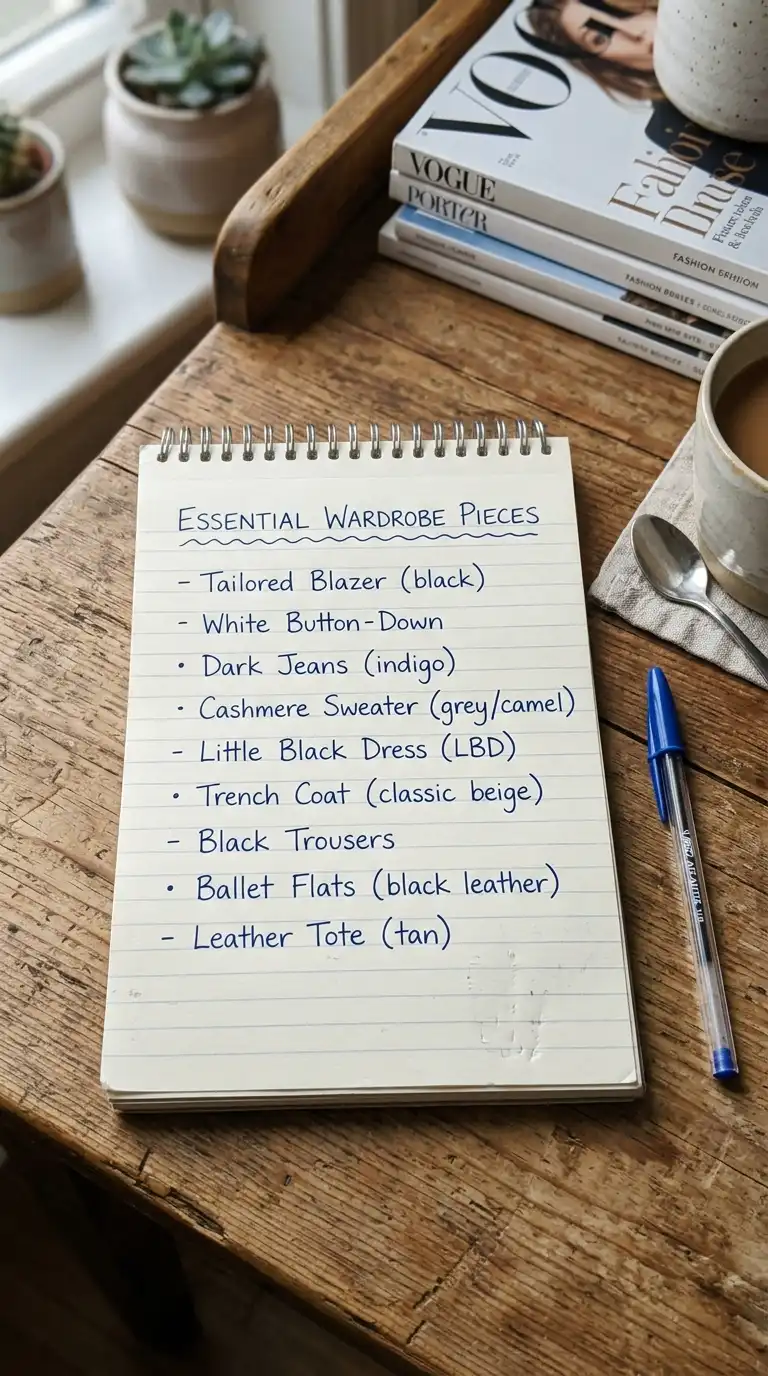 VOGUE
PORTER
FASHION
ESSENTIAL WARDROBE PIECES
- Tailored Blazer (black)
- White Button-Down
• Dark Jeans (indigo)
• Cashmere Sweater (grey/camel)
- Little Black Dress (LBD)
• Trench Coat (classic beige)
- Black Trousers
• Ballet Flats (black leather)
- Leather Tote (tan)